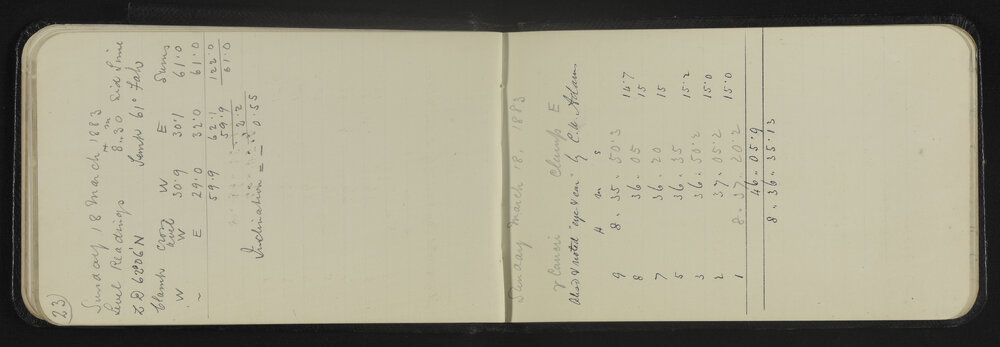 23
Sunday 18 March 1883
Level Readings 8h..30m Sid Time
Z D 62°06'N Temp 61° Fah
Clamp Cross level W E Sums
W W 30.9 30.1 61.0
~ E 29.0 32.0 61.0
59.9 62.1 122.0
59.9 61.0
2.2
Inclination = - 0.55
Sunday March 18. 1883
γ Cancri Clamp E
Obsd & noted "eye & ear" by C.W. Adams
H m s
9 8.35.50.3 14.7
8 36.05 15
7 36.20 15
5 36.35 15.2
3 36.50.2 15.0
2 37.05.2 15.0
1 8.37.20.2
46..05.9
8.36.35.13